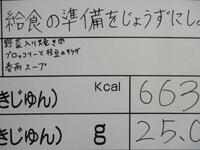 給食の準備をじょうずにし
野菜入り焼き肉
ブロッコリーと枝豆のサラダ
春雨スープ
きじゅん) Kcal 663
きじゅん) g 25.0